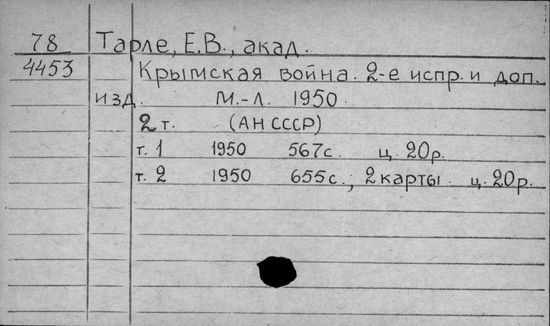 78 Тарле, Е.В., акад.
4453 Крымская война. 2-е испр. и доп.
изд. М.-Л. 1950
2 т. (АН СССР)
т. 1 1950 567с. ц. 20р.
т. 2 1950 655с., 2 карты. ц. 20р.